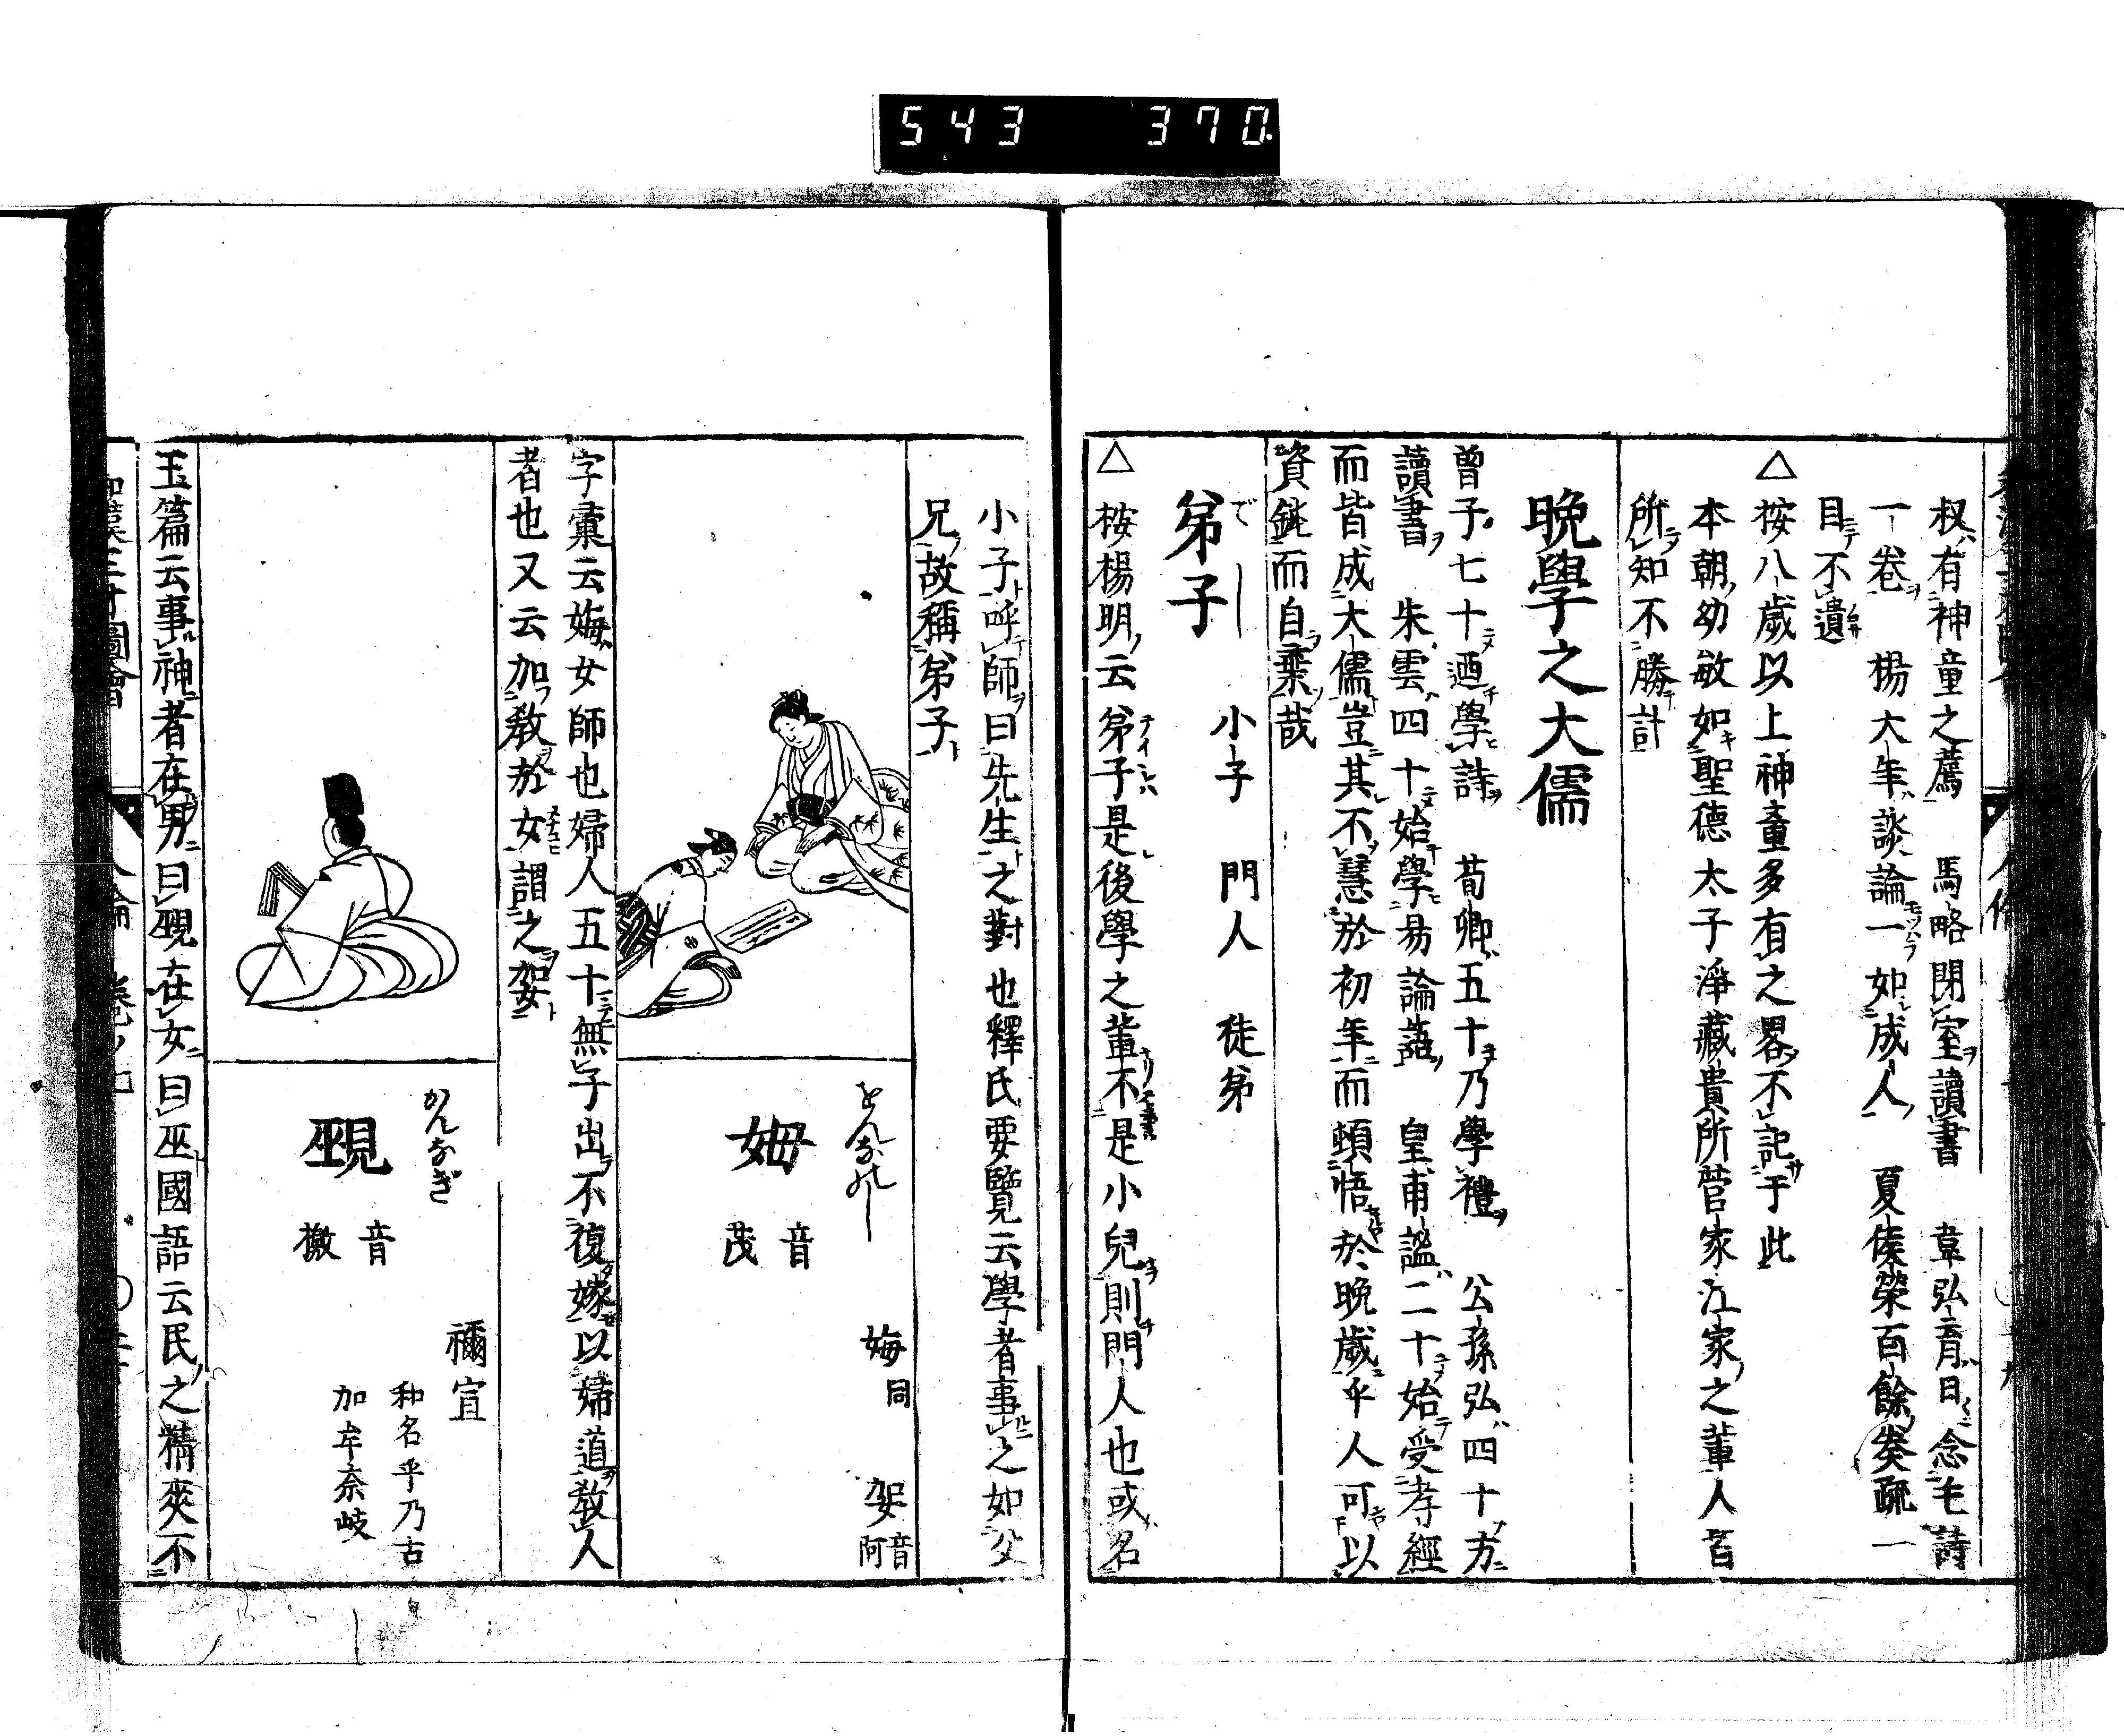 543 370
叔有神童之薦 馬略閉室讀書 韋弘育日念毛詩
一卷 楊大年談論一如成人 夏侯榮百餘奏疏一
目不遺
△按八歲以上神童多有之畧不記于此
本朝幼敏如聖德太子淨藏貴所菅家江家之輩人皆
所知不勝計
晩學之大儒
曽子七十廼學詩 荀卿五十乃學禮 公孫弘四十方
讀書 朱雲四十始學易論語 皇甫謐二十始受孝經
而皆成大儒豈其不慧於初年而頓悟於晚歲乎人可以
資鈍而自棄哉
でし
弟子 小子 門人 徒弟
△按楊明云弟子是後學之輩不是小兒則門人也或名
小子呼師曰先生之對也釋氏要覽云學者事之如父
兄故稱弟子
をんなのし
姆 音茂
娒同 妿音阿
字彙云娒女師也婦人五十無子出不復嫁以婦道教人
者也又云加教於女謂之妿
かんなぎ
覡 音檄
禰宜
和名乎乃古
加牟奈岐
玉篇云事神者在男曰覡在女曰巫國語云民之精爽不